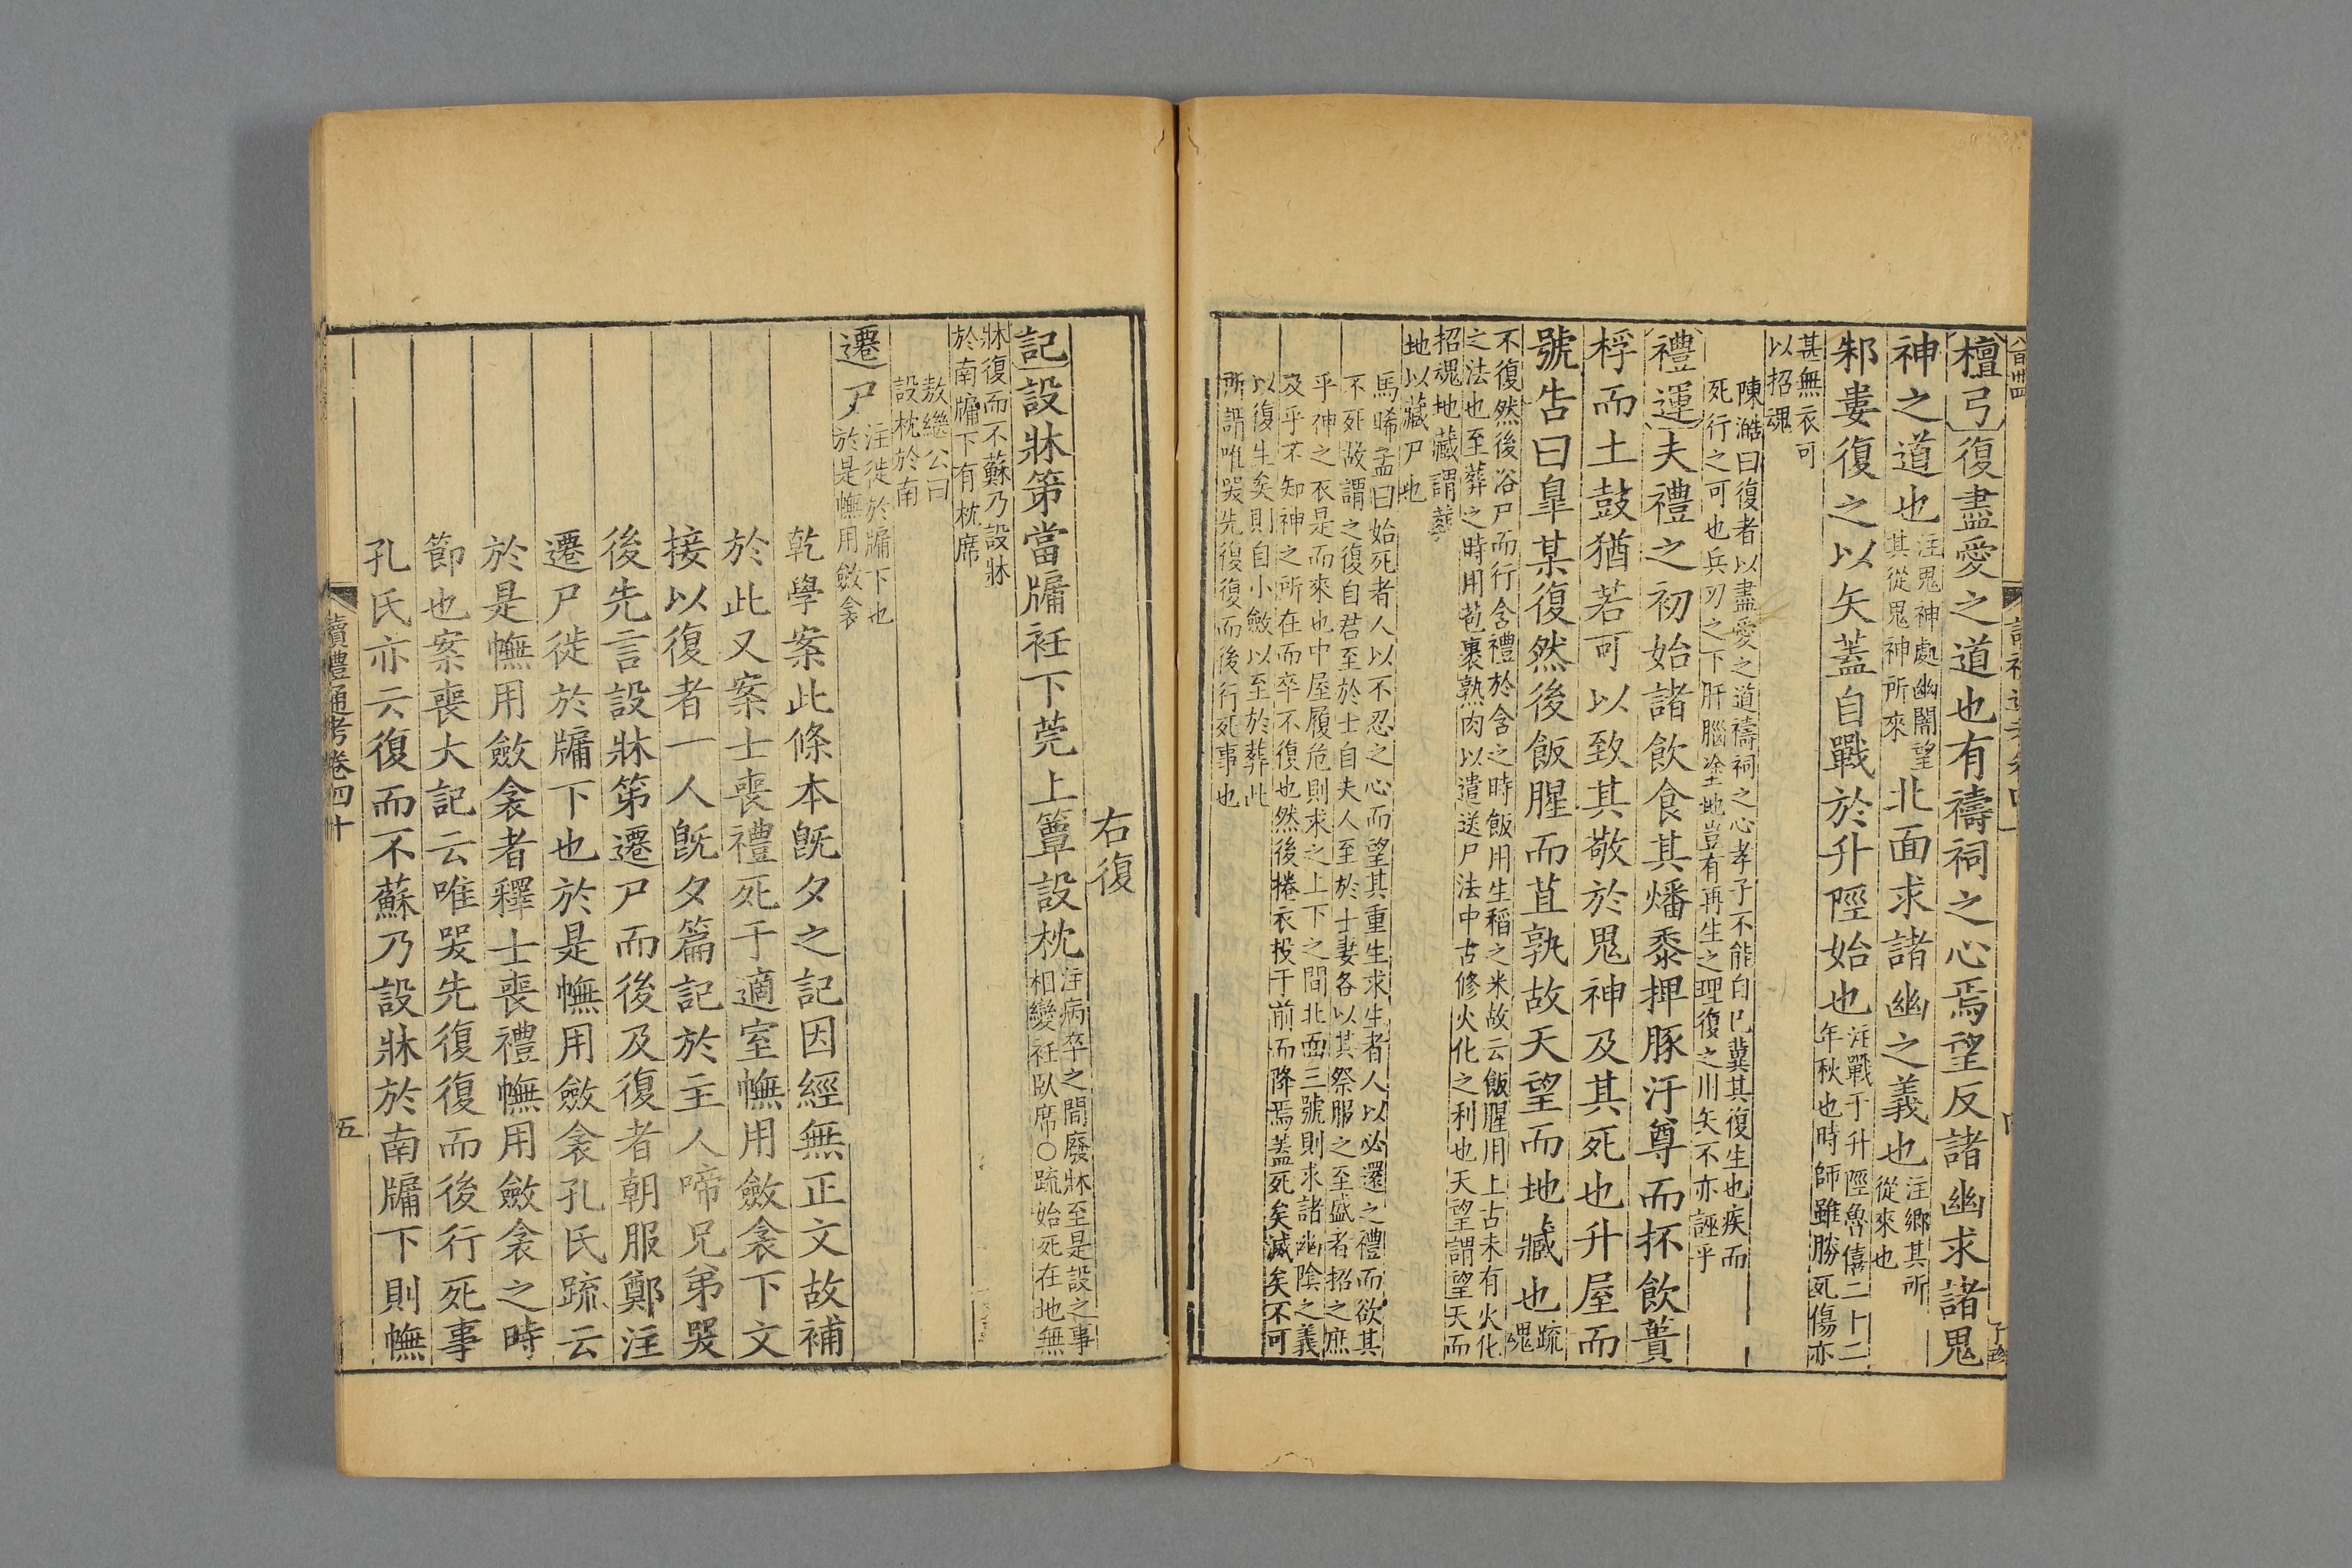 檀弓復盡愛之道也有禱祠之心焉望反諸幽求諸鬼
神之道也
注鬼神處幽闇望
其從鬼神所來
北面求諸幽之義也
注鄉其所
從來也
邾婁復之以矢蓋自戰於升陘始也
注戰于升陘魯僖二十二
年秋也時師雖勝死傷亦
甚無衣可
以招魂
陳澔曰復者以盡愛之道禱祠之心孝子不能自已冀其復生也疾而
死行之可也兵刃之下肝腦塗地豈有再生之理復之川矢不亦誣乎
禮運夫禮之初始諸飲食其燔黍捭豚汙尊而抔飲蕢
桴而土鼓猶若可以致其敬於鬼神及其死也升屋而
號告曰皐某復然後飯腥而苴孰故天望而地藏也
疏
魂
不復然後浴尸而行含禮於含之時飯用生稻之米故云飯腥用上古未有火化
之法也至葬之時用苞裹熟肉以遣送尸法中古修火化之利也天望謂望天而
招魂地藏謂葬
地以藏尸也
馬晞孟曰始死者人以不忍之心而望其重生求生者人以必還之禮而欲其
不死故謂之復自君至於士自夫人至於士妻各以其祭服之至盛者招之庶
乎神之衣是而來也中屋履危則求之上下之間北面三號則求諸幽陰之義
及乎不知神之所在而卒不復也然後捲衣投于前而降焉蓋死矣滅矣不可
以復生矣則自小斂以至於葬此
所謂唯哭先復復而後行死事也
右復
記設牀第當牖衽下莞上簟設枕
注病卒之間廢牀至是設之事
相變衽臥席○疏始死在地無
牀復而不蘇乃設牀
於南牖下有枕席
敖繼公曰
設枕於南
遷尸
注徙於牖下也
於是幠用斂衾
乾學案此條本旣夕之記因經無正文故補
於此又案士喪禮死于適室幠用斂衾下文
接以復者一人旣夕篇記於主人啼兄弟哭
後先言設牀第遷尸而後及復者朝服鄭注
遷尸徙於牖下也於是幠用斂衾孔氏疏云
於是幠用斂衾者釋士喪禮幠用斂衾之時
節也案喪大記云唯哭先復復而後行死事
孔氏亦云復而不蘇乃設牀於南牖下則幠
讀禮通考卷四十
五